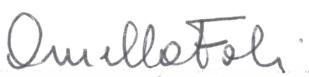 Ornella Foli